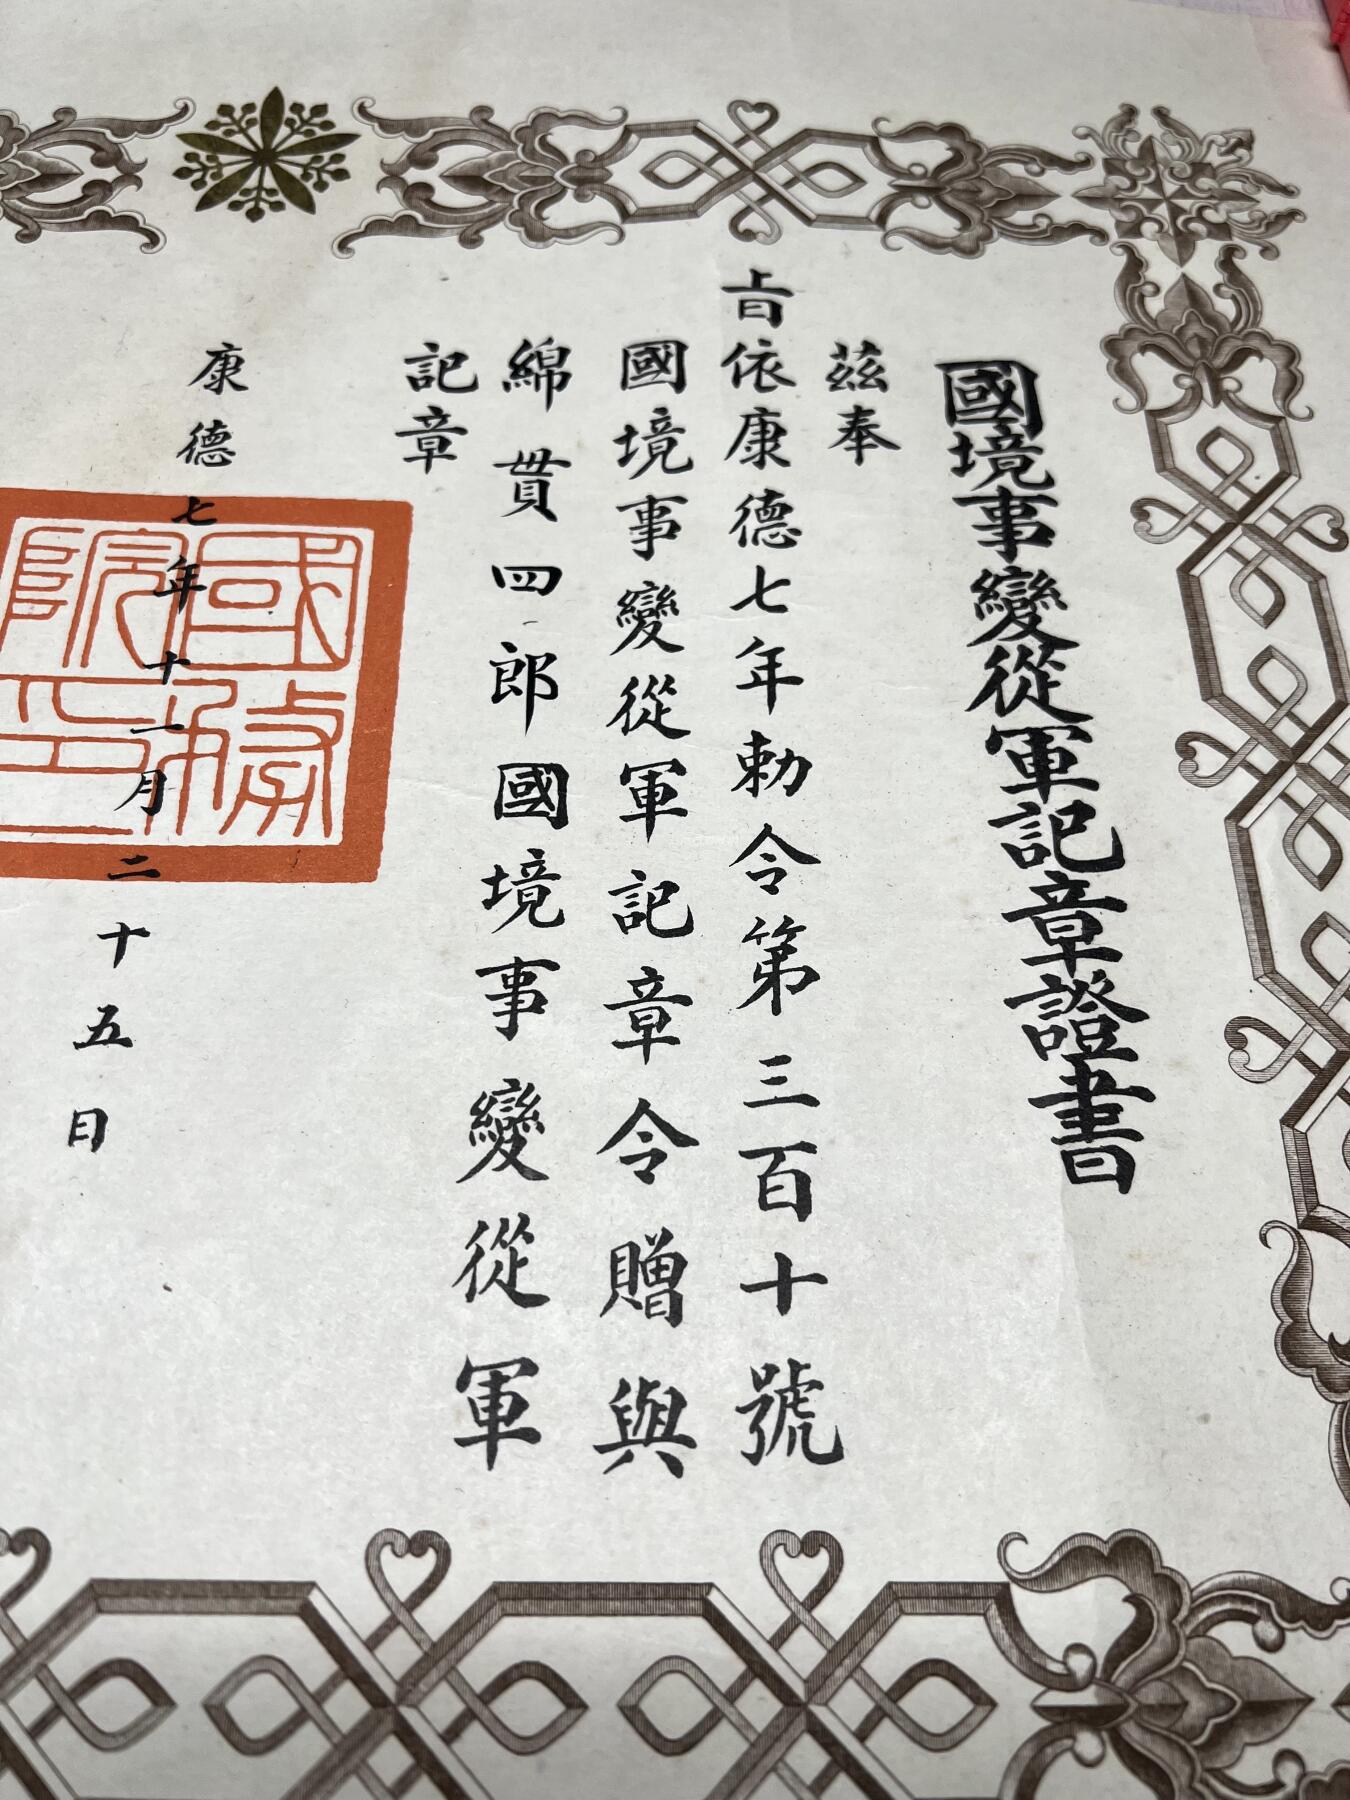 國境事變從軍記章證書
茲奉
旨依康德七年勅令第三百十號
國境事變從軍記章令贈與
綿貫四郎國境事變從軍
記章
康德七年十一月二十五日
國務
院印